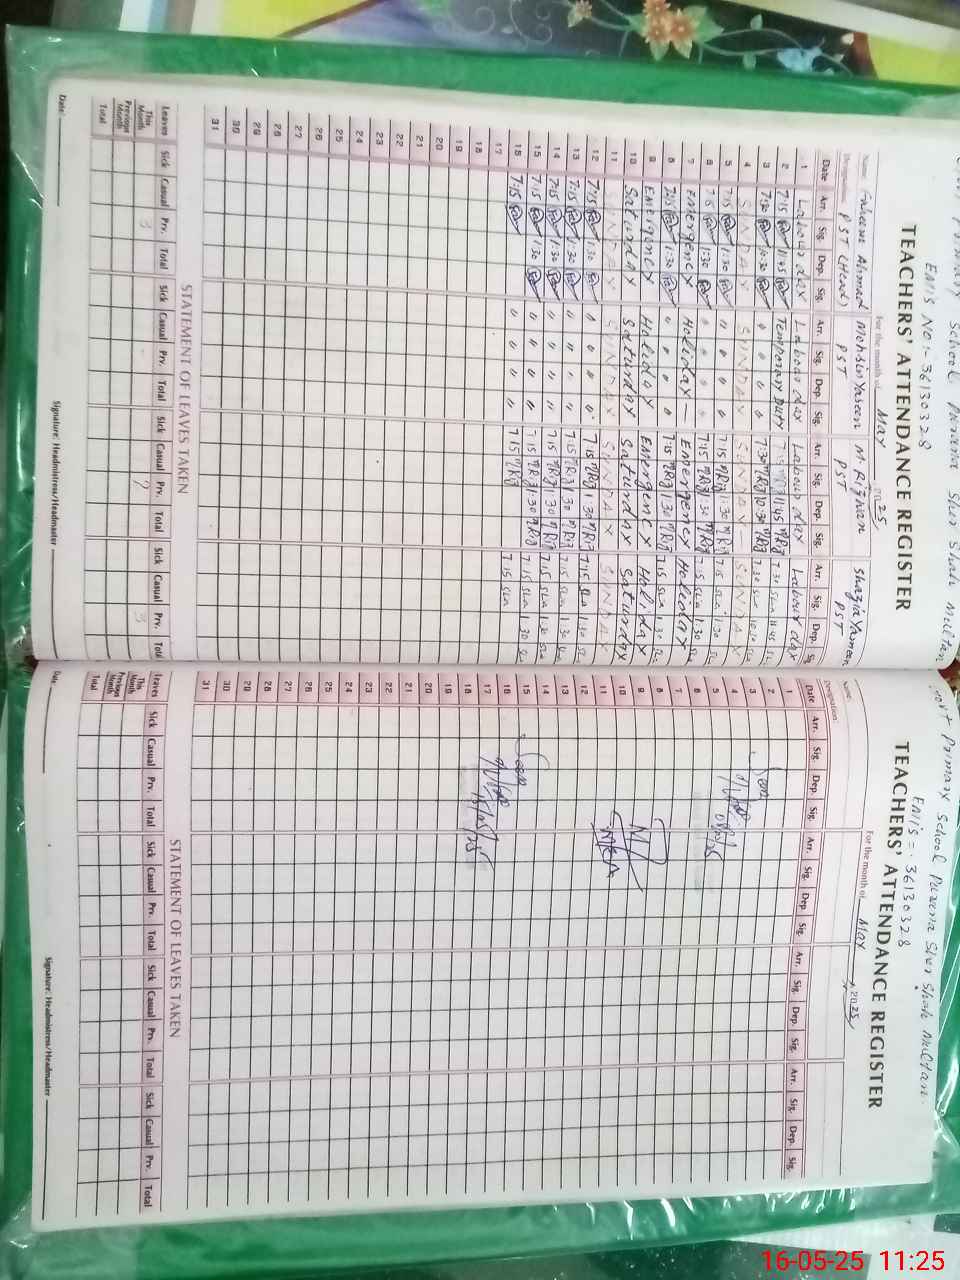 School Purana Sher Shah Multan
EMIS No:- 36130328
TEACHERS' ATTENDANCE REGISTER
For the month of May 2025
Name Faheem Ahmad Mohsin Yaseen M Rizwan Shazia Yameen
Designation: PST (Head) PST PST PST
Date Arr. Sig. Dep. Sig. Arr. Sig. Dep. Sig. Arr. Sig. Dep. Sig. Arr. Sig. Dep.
1 Labour day Labour day Labour day Labour day
2 7:15 11:45 Temporary Duty 11:45 7:30 11:45
3 7:30 10:30 " " " " 7:30 10:30 7:30 10:30
4 SUNDAY SUNDAY SUNDAY SUNDAY
5 7:15 1:30 " " 7:15 1:30 7:15 1:30
6 7:15 1:30 " " " " 7:15 1:30 7:15 1:30
7 Emergency Holiday — Emergency Holiday
8 7:15 1:30 " " " " 7:15 1:30 7:15 1:30
9 Emergency Holiday Emergency Holiday
10 Saturday Saturday Saturday Saturday
11 SUNDAY SUNDAY SUNDAY SUNDAY
12 7:15 1:30 " " " " 7:15 1:30 7:15 1:30
13 7:15 1:30 " " " " 7:15 1:30 7:15 1:30
14 7:15 1:30 " " " " 7:15 1:30 7:15 1:30
15 7:15 1:30 " " " " 7:15 1:30 7:15 1:30
16 7:15 " " " " 7:15 7:15
17
18
19
20
21
22
23
24
25
26
27
28
29
30
31
STATEMENT OF LEAVES TAKEN
Leaves Sick Casual Prv. Total Sick Casual Prv. Total Sick Casual Prv. Total Sick Casual Prv. Total
This Month 3 7 3
Previous Month
Total
Date: Signature: Headmistress/Headmaster
Primary School Purana Sher Shah Multan.
Emis = 36130328
TEACHERS' ATTENDANCE REGISTER
For the month of May 2025
Name:
Designation:
Date Arr. Sig. Dep. Sig. Arr. Sig. Dep. Sig. Arr. Sig. Dep. Sig. Arr. Sig. Dep. Sig.
1
2
3 Seen
4
5
6
7
8
9
10
11
12
13
14
15 Seen
16
17 15/05/25
18
19
20
21
22
23
24
25
26
27
28
29
30
31
STATEMENT OF LEAVES TAKEN
Leaves Sick Casual Prv. Total Sick Casual Prv. Total Sick Casual Prv. Total Sick Casual Prv. Total
This Month
Previous Month
Total
Date Signature: Headmistress/Headmaster
16-05-25 11:25